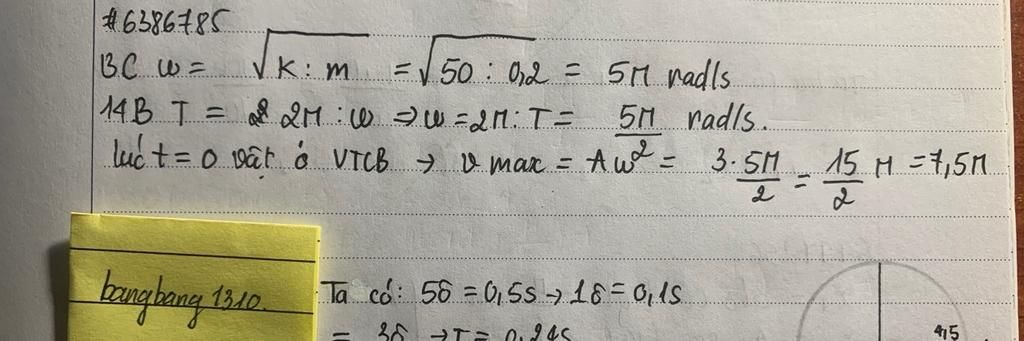 #6386785
13C ω = √K : m = √50 : 0,2 = 5π rad/s
14B T = 2π : ω ⇒ ω = 2π : T = 5π/2 rad/s.
lúc t = 0 vật ở VTCB → v max = Aω² = 3 . 5π/2 = 15/2 π = 7,5π
bangbang 1310.
Ta có: 5δ = 0,5s → 1δ = 0,1s
= 3δ → T = 0,24s
4,5